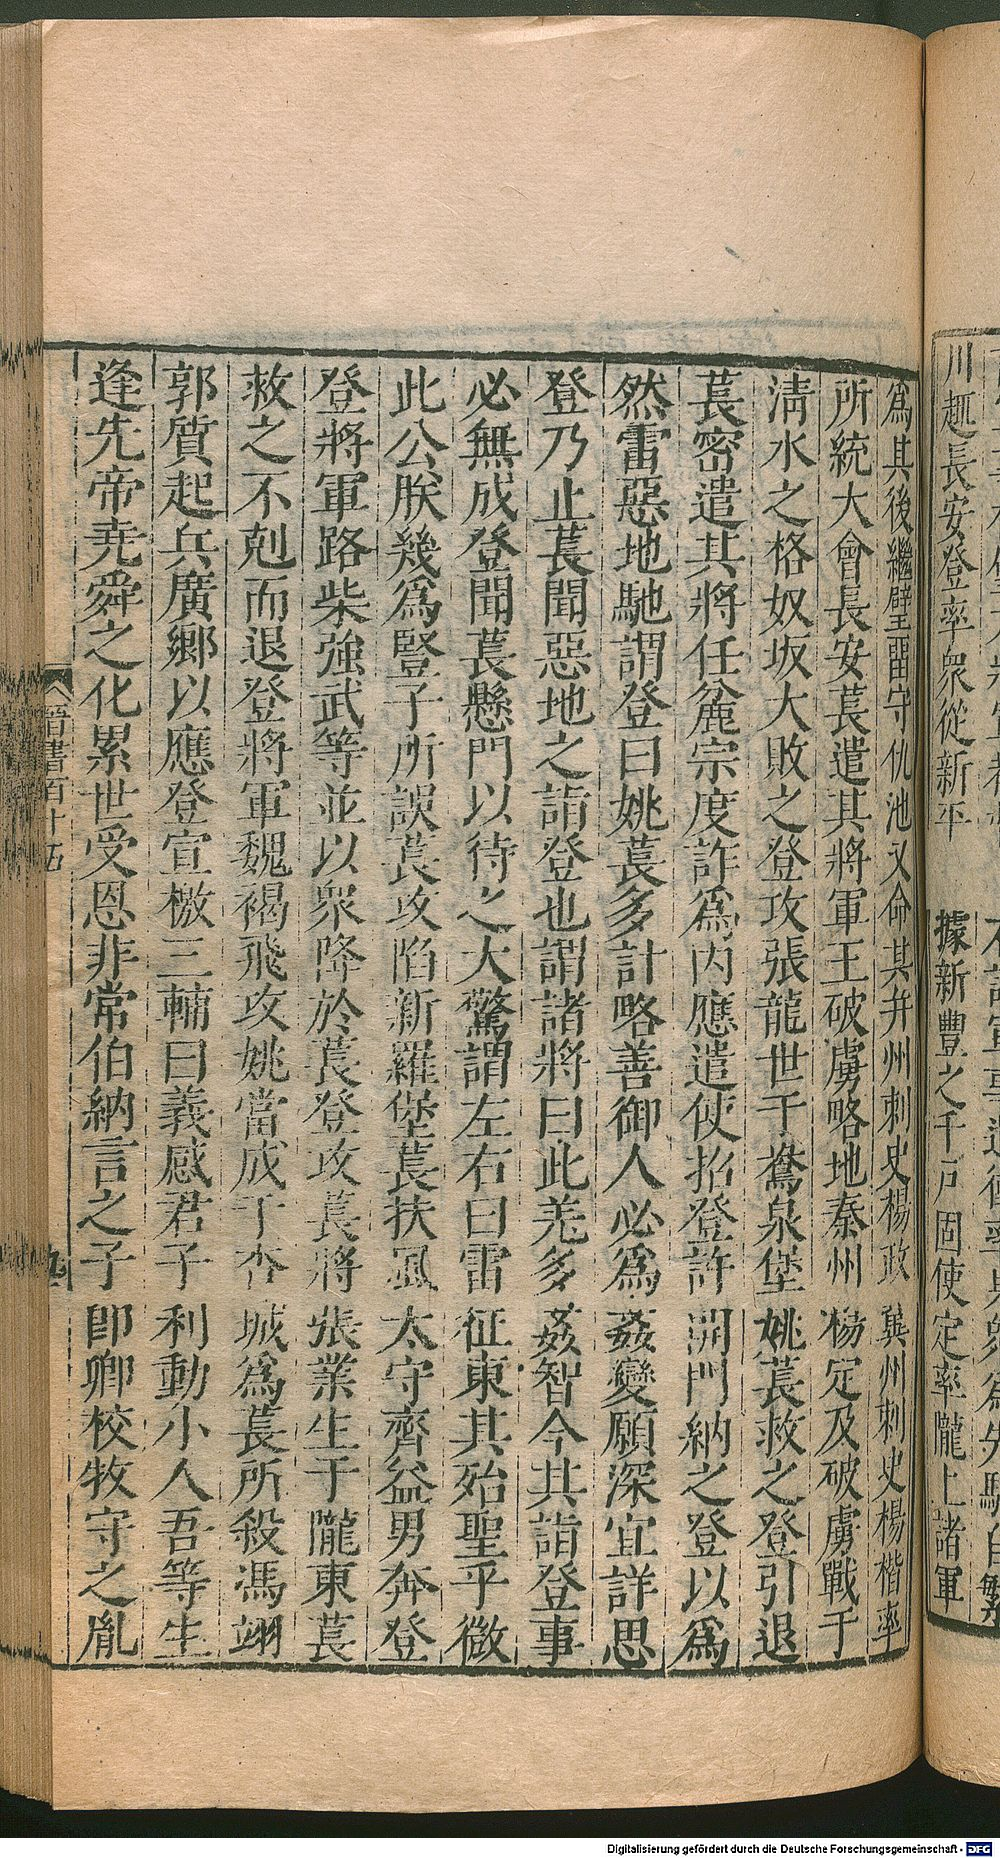 川趣長安登率衆從新平據新豐之千戶固使定率隴上諸軍
爲其後繼壁留守仇池又命其幷州刺史楊政冀州刺史楊楷率
所統大會長安萇遣其將軍王破虜略地秦州楊定及破虜戰于
淸水之格奴坂大敗之登攻張龍世于鴦泉堡姚萇救之登引退
萇密遣其將任瓫宗度詐爲内應遣使招登許開門納之登以爲
然雷惡地馳謂登曰姚萇多計略善御人必爲姦變願深宜詳思
登乃止萇聞惡地之詣登也謂諸將曰此羌多姦智今共詣登事
必無成登聞萇懸門以待之大驚謂左右曰雷征東其殆聖乎微
此公朕幾爲豎子所誤萇攻陷新羅堡萇扶風太守齊益男奔登
登將軍路柴強武等並以衆降於萇登攻萇將張業生于隴東萇
救之不剋而退登將軍魏褐飛攻姚當成于杏城爲萇所殺馮翊
郭質起兵廣鄉以應登宣檄三輔曰義感君子利動小人吾等生
逢先帝堯舜之化累世受恩非常伯納言之子卽卿校牧守之胤
晉書百十五
九
Digitalisierung gefördert durch die Deutsche Forschungsgemeinschaft - DFG